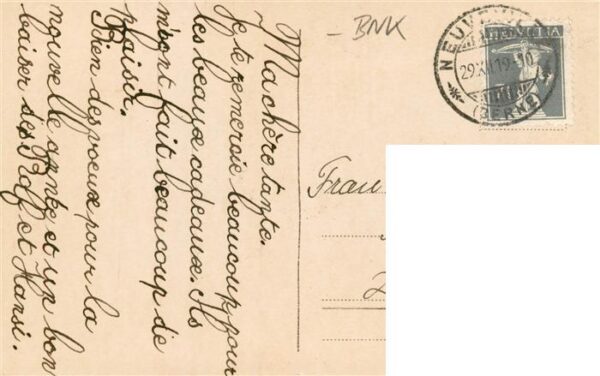 Ma chère tante.
Je te remercie beaucoup pour
les beaux cadeaux. Ils
m'ont fait beaucoup de
plaisir.
Bien des voeux pour la
nouvelle année et un bon
baiser de Rolf et Hansi.
- BNK
HELVETIA
NEUVEV
29.XII.19.-10
(BERNE)
Frau